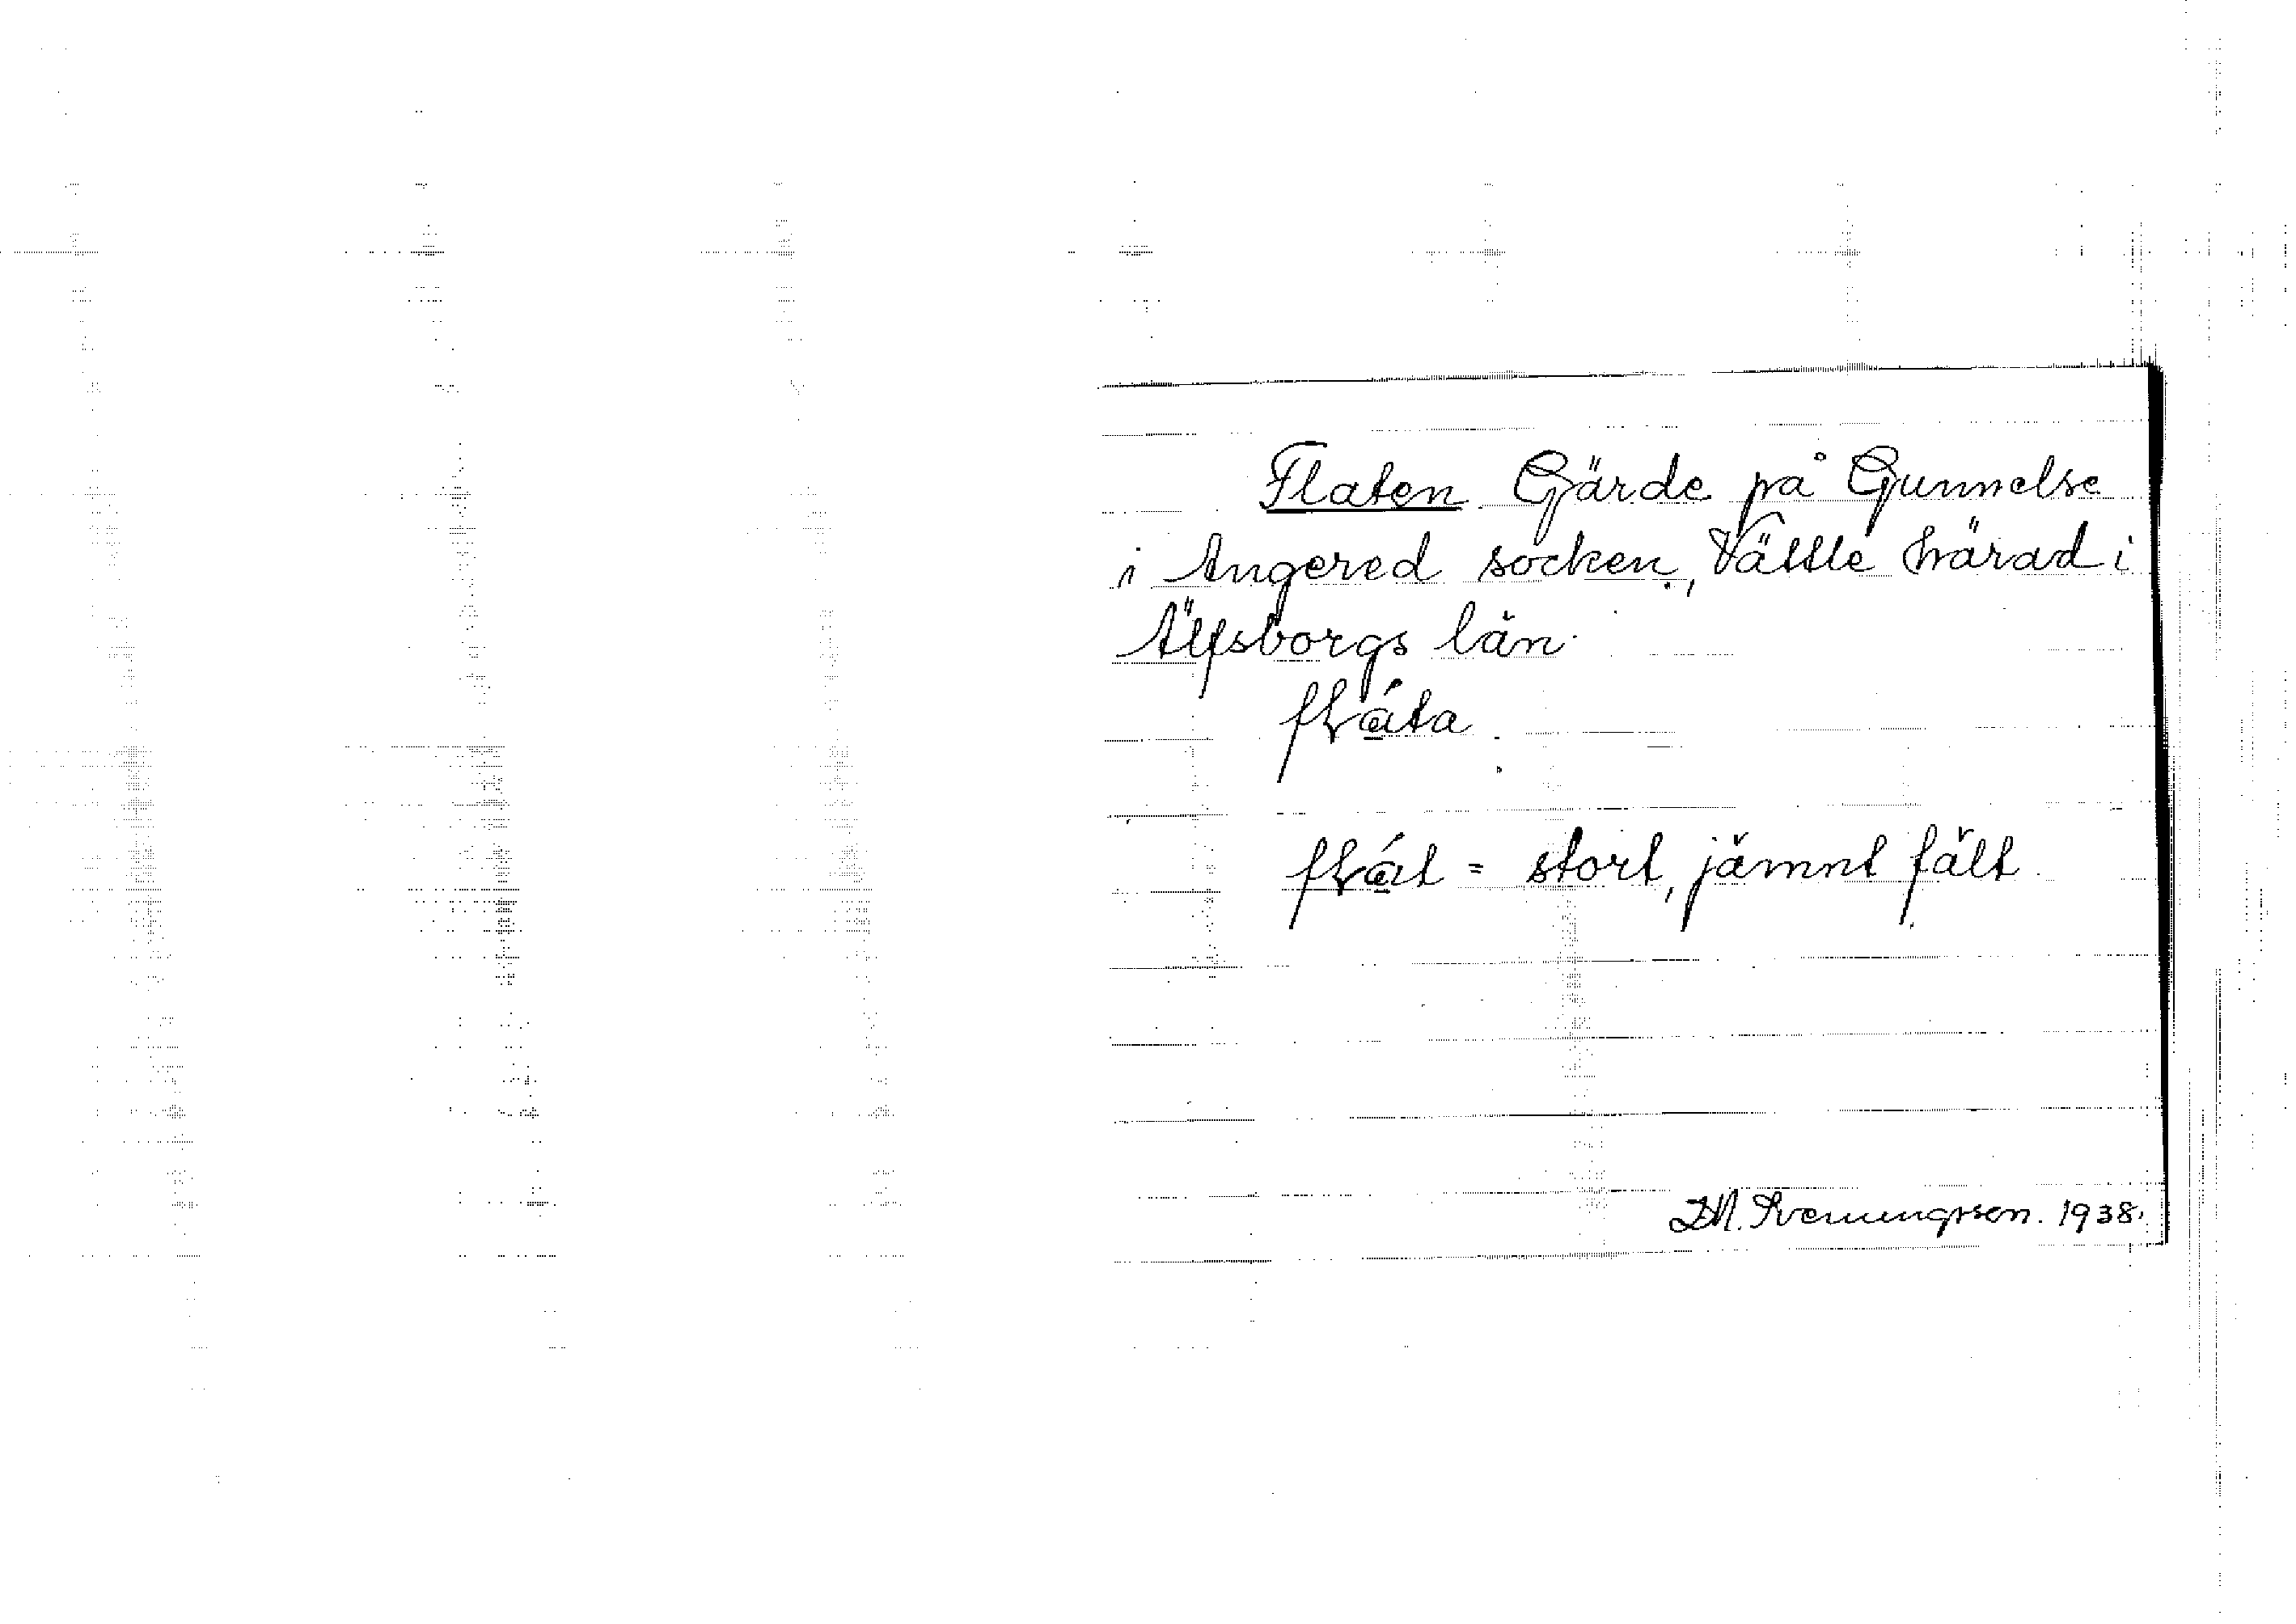 Flaten Gärde på Gunnelse
i Angered socken, Vättle härad i
Älfsborgs län.
= stort, jämnt fält.
1938.